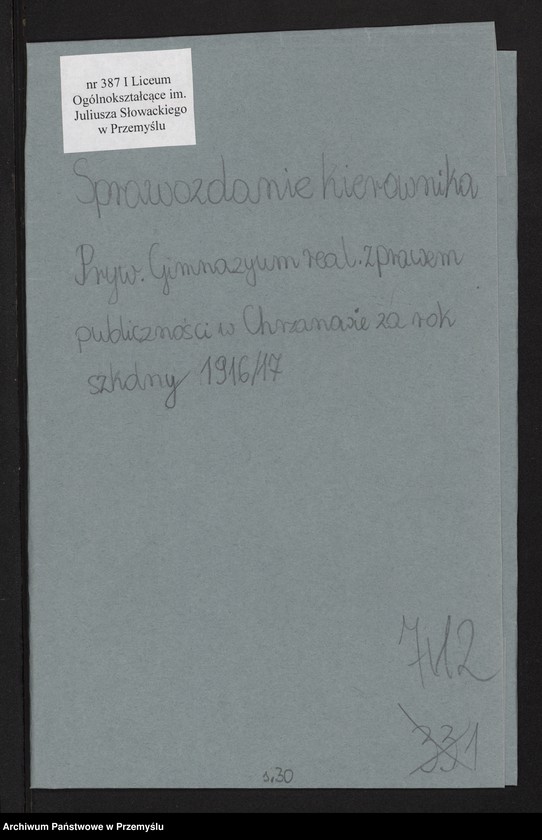 nr 387 I Liceum
Ogólnokształcące im.
Juliusza Słowackiego
w Przemyślu
Sprawozdanie kierownika
Pryw. Gimnazyum real. z prawem
publiczności w Chrzanowie za rok
szkolny 1916/17
712
331
s.30
Archiwum Państwowe w Przemyślu